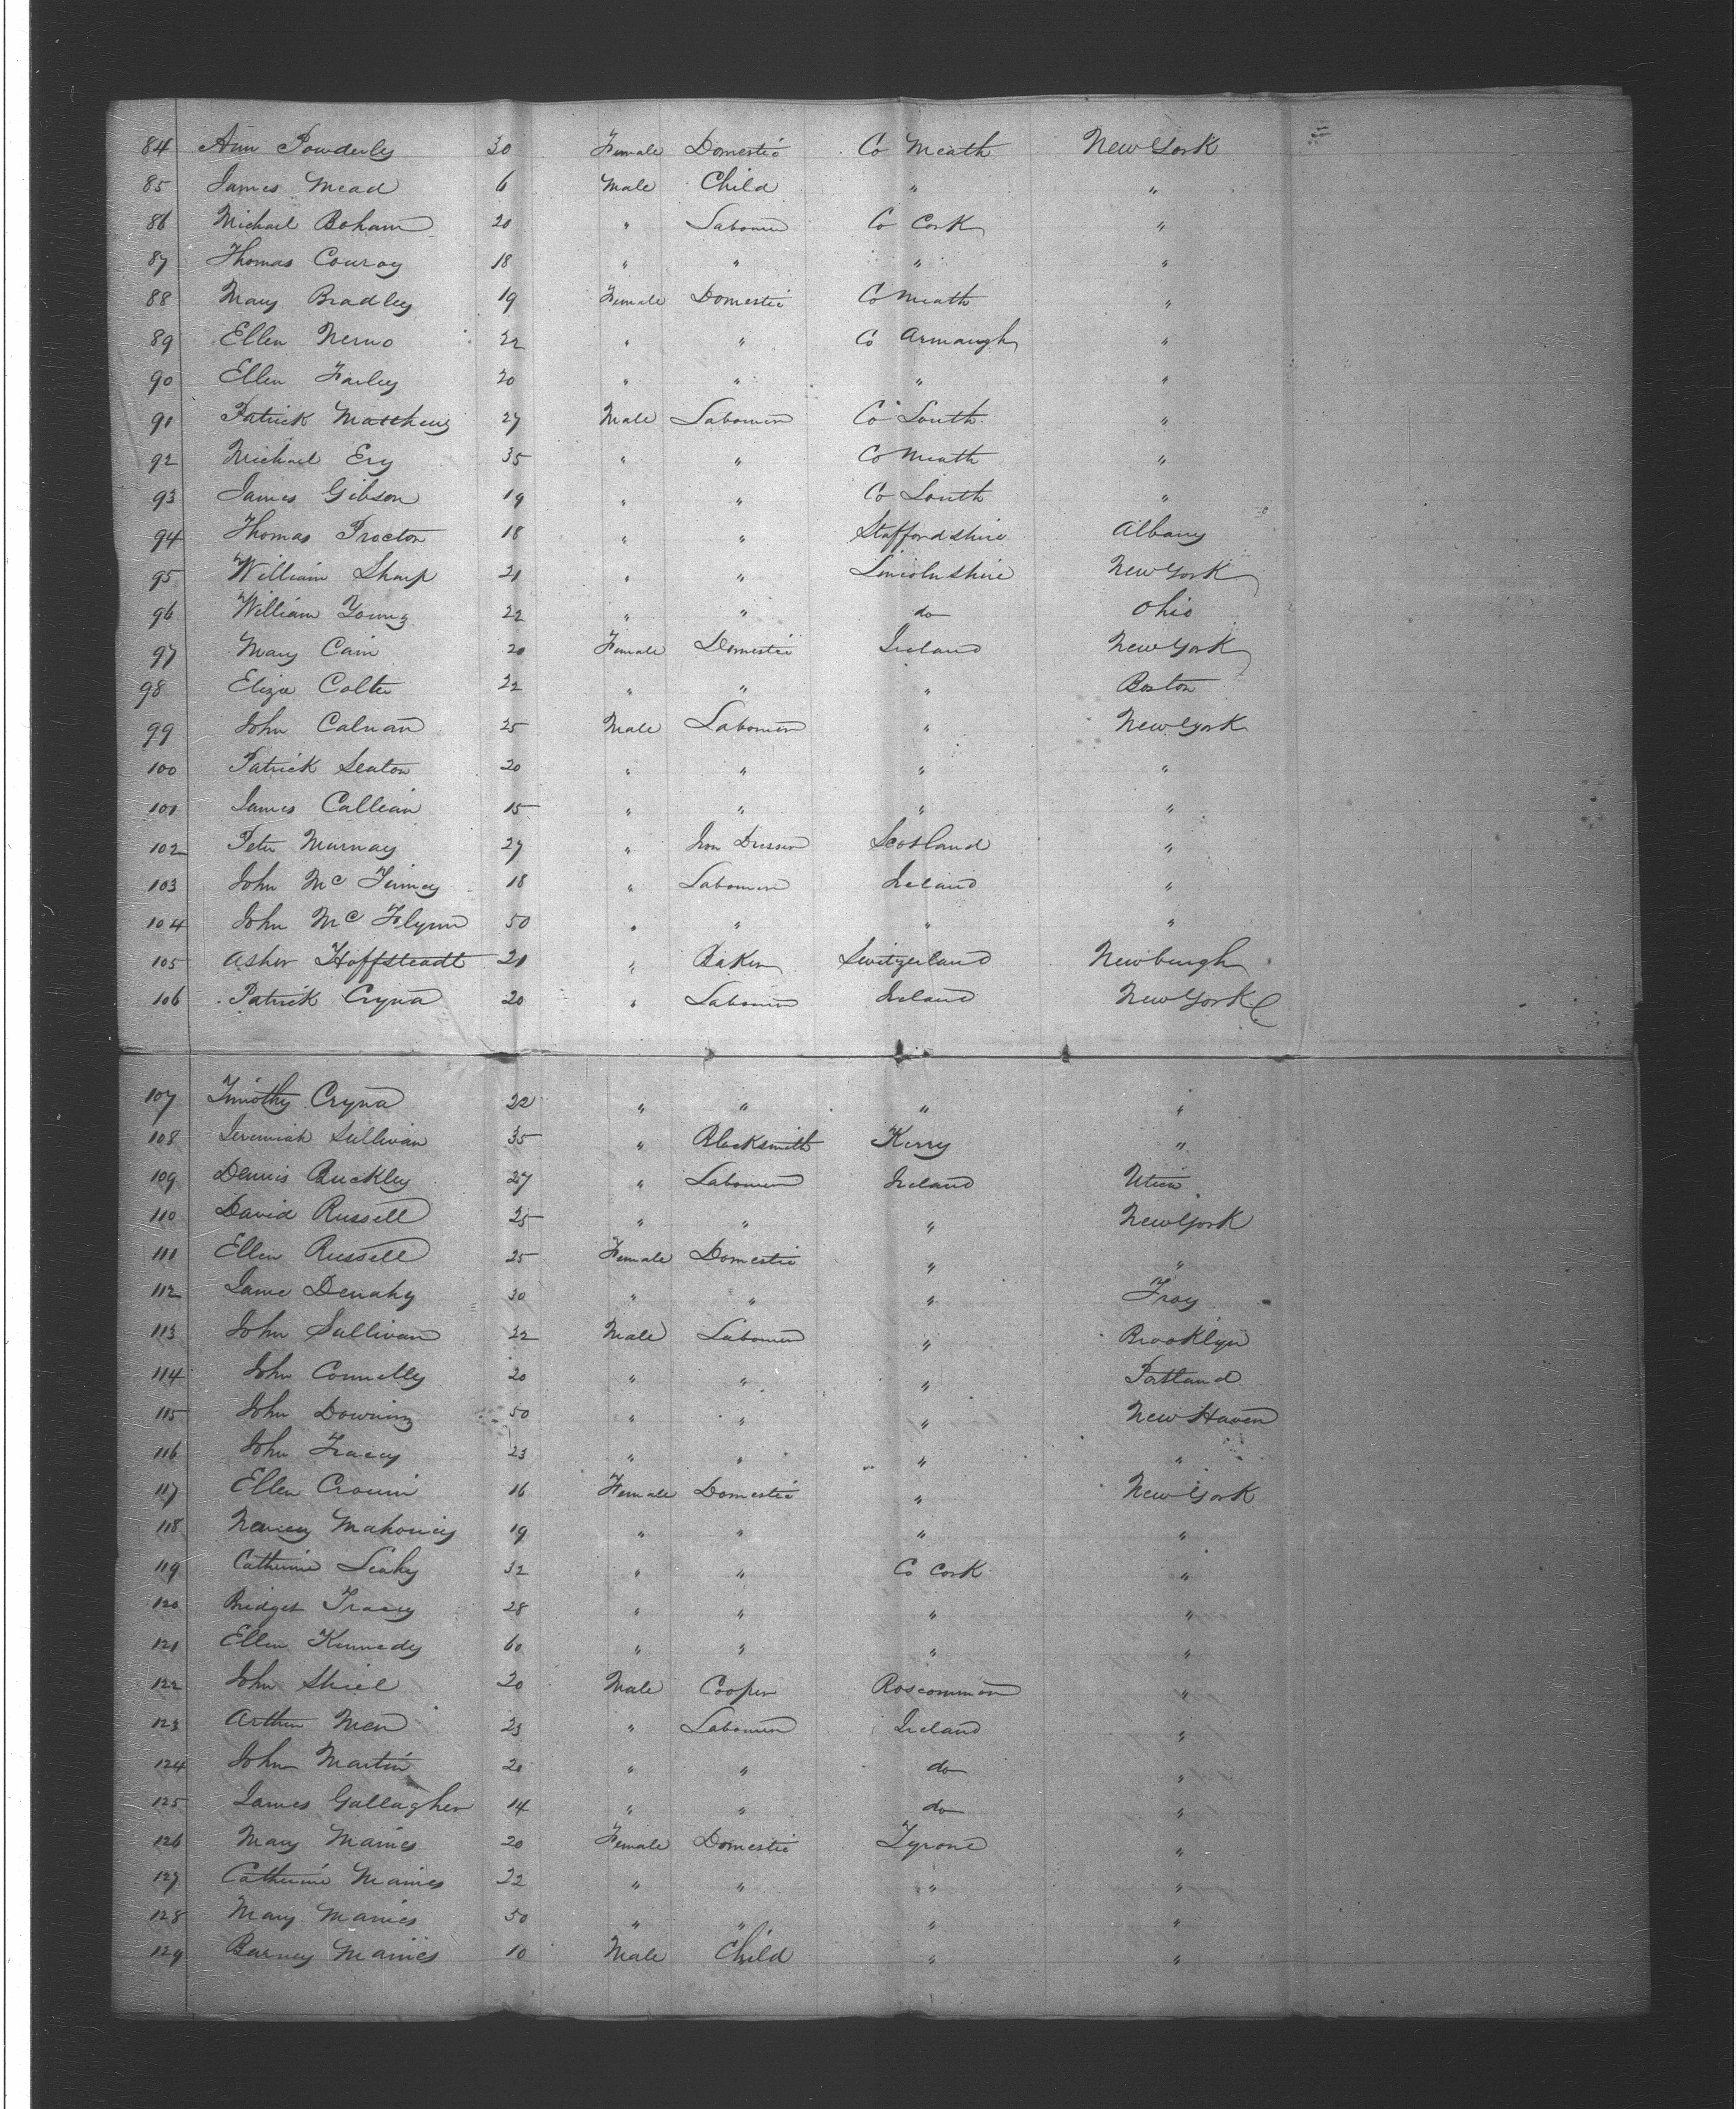 84 Ann Powderly 30 Female Domestic Co Meath New York
85 James Mead 6 Male Child " "
86 Michael Boham 20 " Labourer Co Cork "
87 Thomas Conroy 18 " " " "
88 Mary Bradley 19 Female Domestic Co Meath "
89 Ellen Nerno 22 " " Co Armaugh "
90 Ellen Farley 20 " " " "
91 Patrick Matthews 27 Male Labourer Co Louth "
92 Michael Ery 35 " " Co Meath "
93 James Gibson 19 " " Co Louth "
94 Thomas Procton 18 " " Staffordshire Albany
95 William Sharp 21 " " Lincolnshire New York
96 William Young 22 " " do Ohio
97 Mary Cain 20 Female Domestic Ireland New York
98 Eliza Colter 22 " " " Boston
99 John Calnan 25 Male Labourer " New York
100 Patrick Seaton 20 " " " "
101 James Callean 15 " " " "
102 Peter Murnay 27 " Iron Dresser Scotland "
103 John Mc Finney 18 " Labourer Ireland "
104 John Mc Flynn 50 " " " "
105 Asher Hoffsteadt 21 " Baker Switzerland Newburgh
106 Patrick Cryna 20 " Labourer Ireland New York
107 Timothy Cryna 22 " " " "
108 Jeremiah Sullivan 35 " Blacksmith Kerry "
109 Dennis Buckley 27 " Labourer Ireland Utica
110 David Russell 25 " " " New York
111 Ellen Russell 25 Female Domestic " "
112 Jane Denahy 30 " " " Troy
113 John Sullivan 22 Male Labourer " Brooklyn
114 John Connelly 20 " " " Portland
115 John Downing 50 " " " New Haven
116 John Tracey 23 " " " "
117 Ellen Cronin 16 Female Domestic " New York
118 Nancy Mahoney 19 " " " "
119 Catherine Leahy 32 " " Co Cork "
120 Bridget Tracey 28 " " " "
121 Ellen Kennedy 60 " " " "
122 John Shiel 20 Male Cooper Roscommon "
123 Arthur Men 23 " Labourer Ireland "
124 John Martin 20 " " do "
125 James Gallagher 14 " " do "
126 Mary Manies 20 Female Domestic Tyrone "
127 Catherine Manies 22 " " " "
128 Mary Manies 50 " " " "
129 Barney Manies 10 Male Child " "